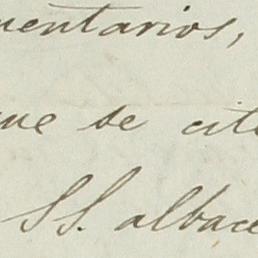 mentarios,
que se cit
SS. albace